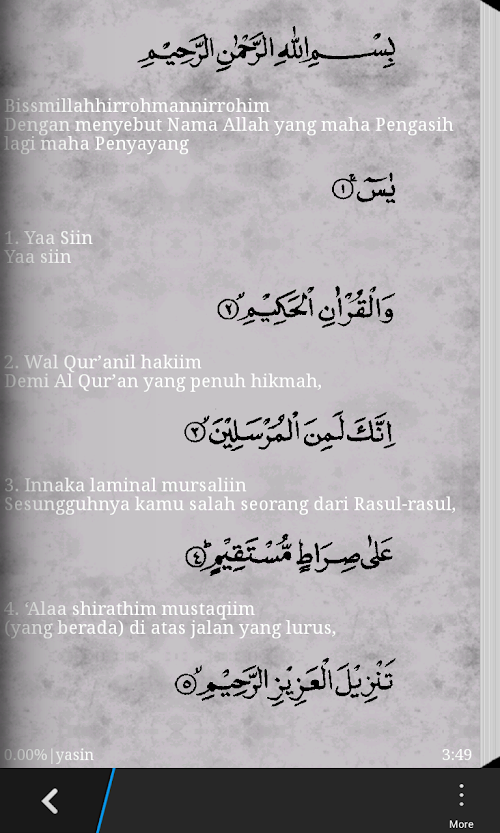 بِسْمِ اللهِ الرَّحْمٰنِ الرَّحِيْمِ
Bissmillahhirrohmannirrohim
Dengan menyebut Nama Allah yang maha Pengasih
lagi maha Penyayang
يٰسٓ ۚ ﴿١﴾
1. Yaa Siin
Yaa siin
وَالْقُرْاٰنِ الْحَكِيْمِ ۙ ﴿٢﴾
2. Wal Qur’anil hakiim
Demi Al Qur’an yang penuh hikmah,
اِنَّكَ لَمِنَ الْمُرْسَلِيْنَ ۙ ﴿٣﴾
3. Innaka laminal mursaliin
Sesungguhnya kamu salah seorang dari Rasul-rasul,
عَلٰى صِرَاطٍ مُّسْتَقِيْمٍ ۗ ﴿٤﴾
4. ‘Alaa shirathim mustaqiim
(yang berada) di atas jalan yang lurus,
تَنْزِيْلَ الْعَزِيْزِ الرَّحِيْمِ ۙ ﴿٥﴾
0.00%|yasin 3:49
More